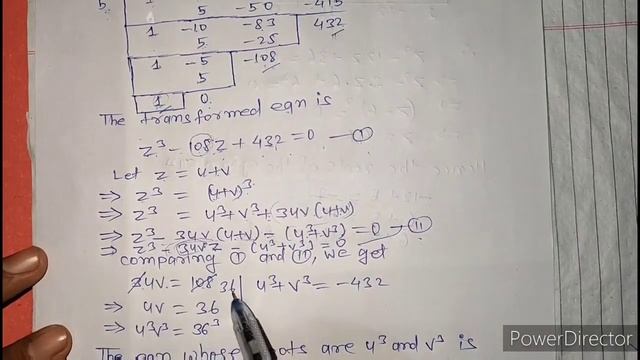 5. 1 5 -50 -415
1 -10 -83 432
5 -25
1 -5 -108
5
1 0
The transformed eqn is
z³ - 108z + 432 = 0 — (I)
Let z = u+v
⇒ z³ = (u+v)³
⇒ z³ = u³+v³+3uv(u+v)
⇒ z³ - 3uv(u+v) - (u³+v³) = 0 → (II)
⇒ z³ - 3uvz - (u³+v³) = 0
comparing (I) and (II), we get
3uv = 108 36 | u³+v³ = -432
⇒ uv = 36
⇒ u³v³ = 36³
The eqn whose roots are u³ and v³ is
PowerDirector